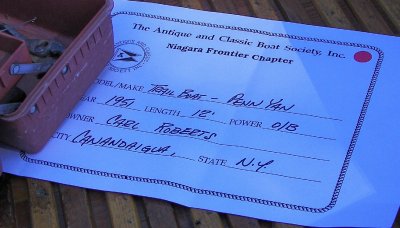 The Antique and Classic Boat Society, Inc.
Niagara Frontier Chapter
MODEL/MAKE TRAIL BOAT - PENN YAN
YEAR 1951 LENGTH 12' POWER O/B
OWNER CARL ROBERTS
CITY CANANDAIGUA, STATE N.Y